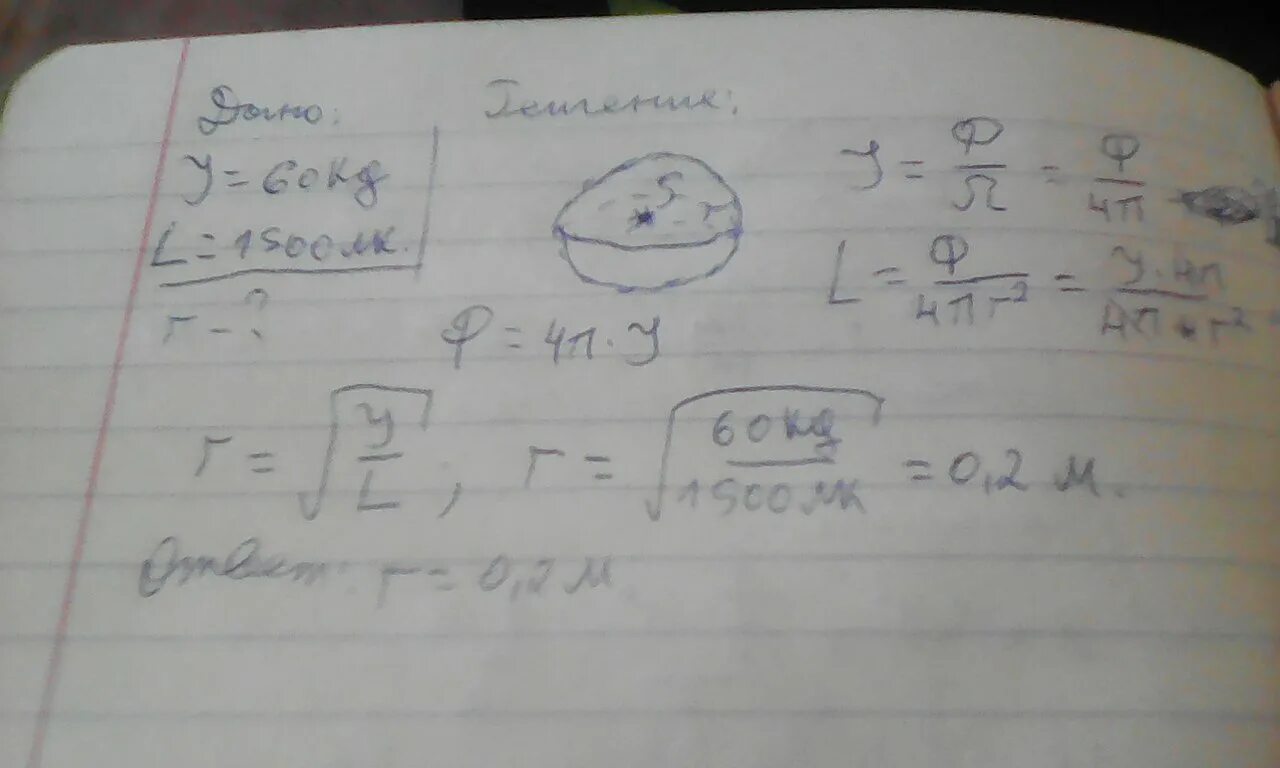 Дано:
У = 60 кд
L = 1500 лк.
r - ?
Решение:
S
r
У = Ф/Ω = Ф/4π
L = Ф/4πr² = У·4π/4π·r²
Ф = 4π·У
r = √(У/L) ; r = √(60 кд/1500 лк) = 0,2 м.
Ответ: r = 0,2 м.